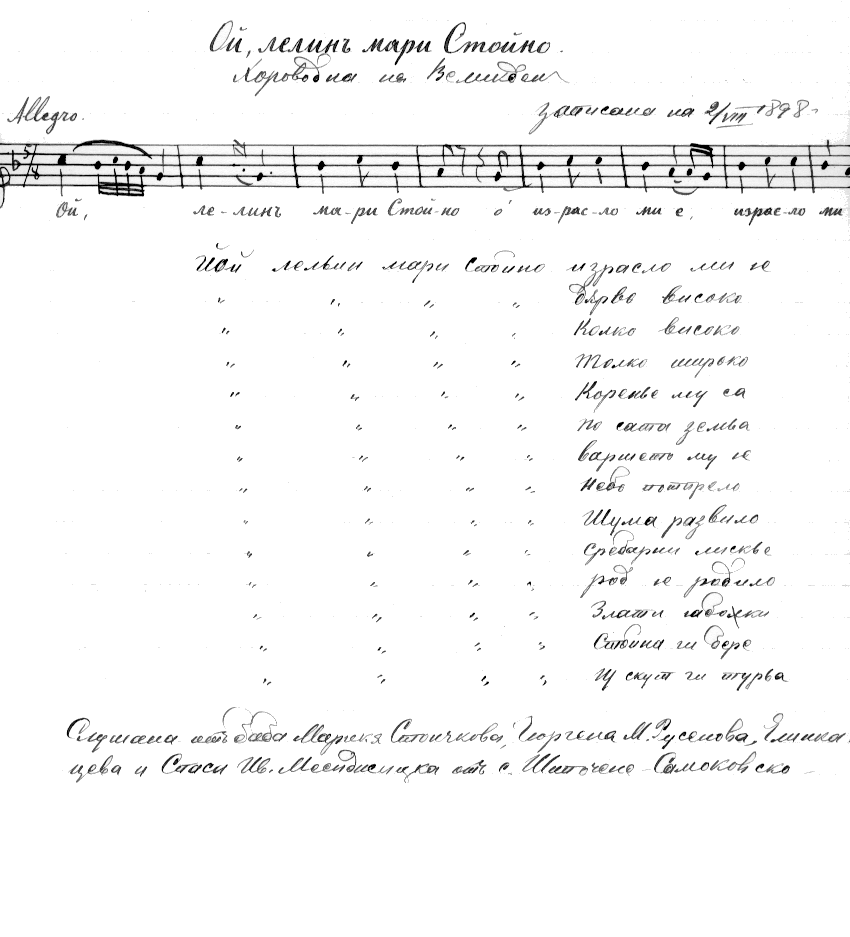 Ой, лелинъ мари Стойно.
Хороводна на Великден
Allegro.
записана на 2/VIII 1898.
5/8
Ой, ле-линъ ма-ри Стой-но о из-рас-ло ми е, израс-ло ми
Йой лельин мари Стойно израсло ми је
〃 〃 〃 〃 дярво високо
〃 〃 〃 〃 Колко високо
〃 〃 〃 〃 Толко широко
〃 〃 〃 〃 Коренье му са
〃 〃 〃 〃 по сата земва
〃 〃 〃 〃 варшето му је
〃 〃 〃 〃 Небо потпрело
〃 〃 〃 〃 Шума развило
〃 〃 〃 〃 сребарни лискве
〃 〃 〃 〃 род је родило
〃 〃 〃 〃 Злати јаболки
〃 〃 〃 〃 Стойна ги бере
〃 〃 〃 〃 у скут ги турва
Слушана отъ баба Марекя Стоичкова, Гюргена М. Русенова, Елинка
цева и Стаси Ив. от с. Шипочене - Самоковско